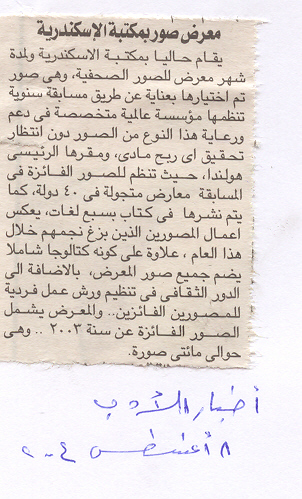 معرض صور بمكتبة الإسكندرية
يقام حاليا بمكتبة الاسكندرية ولمدة
شهر معرض للصور الصحفية، وهى صور
تم اختيارها بعناية عن طريق مسابقة سنوية
تنظمها مؤسسة عالمية متخصصة فى دعم
ورعاية هذا النوع من الصور دون انتظار
تحقيق اى ربح مادى، ومقرها الرئيسى
هولندا، حيث تنظم للصور الفائزة فى
المسابقة معارض متجولة فى ٤٠ دولة، كما
يتم نشرها فى كتاب بسبع لغات، يعكس
اعمال المصورين الذين بزغ نجمهم خلال
هذا العام ، علاوة على كونه كتالوجا شاملا
يضم جميع صور المعرض، بالاضافة الى
الدور الثقافى فى تنظيم ورش عمل فردية
للمصورين الفائزين.. والمعرض يشمل
الصور الفائزة عن سنة ٢٠٠٣ .. وهى
حوالى مائتى صورة.
أخبار الأدب
٨ أغسطس ٢٠٠٤